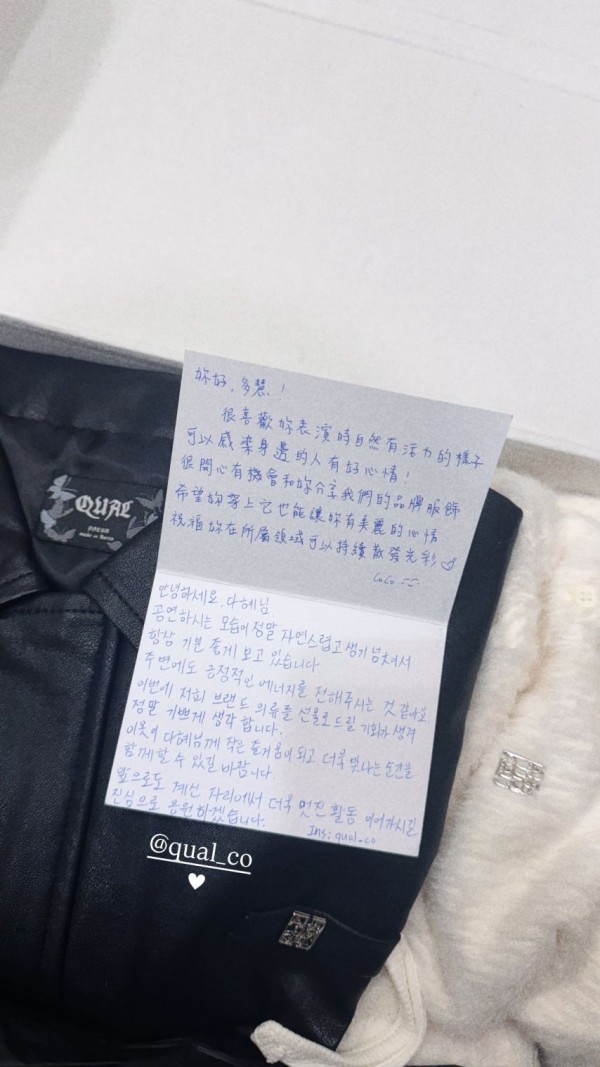 妳好，多慧！
很喜歡妳表演時自然有活力的樣子
可以感染身邊的人有好心情！
很開心有機會和妳分享我們的品牌服飾
希望妳穿上它也能讓妳有美麗的心情
祝福妳在所屬領域可以持續散發光彩
CoCo
QUAL
made in Korea
안녕하세요, 다혜님
공연하시는 모습이 정말 자연스럽고 생기 넘쳐서
항상 기분 좋게 보고 있습니다
주변에도 긍정적인 에너지를 전해주시는 것 같아요
이번에 저희 브랜드 의류를 선물로 드릴 기회가 생겨
정말 기쁘게 생각합니다.
이옷이 다혜님께 작은 즐거움이 되고 더욱 빛나는 순간을
함께할 수 있길 바랍니다
앞으로도 계신 자리에서 더욱 멋진 활동 이어가시길
진심으로 응원하겠습니다.
Ins: qual_co
@qual_co